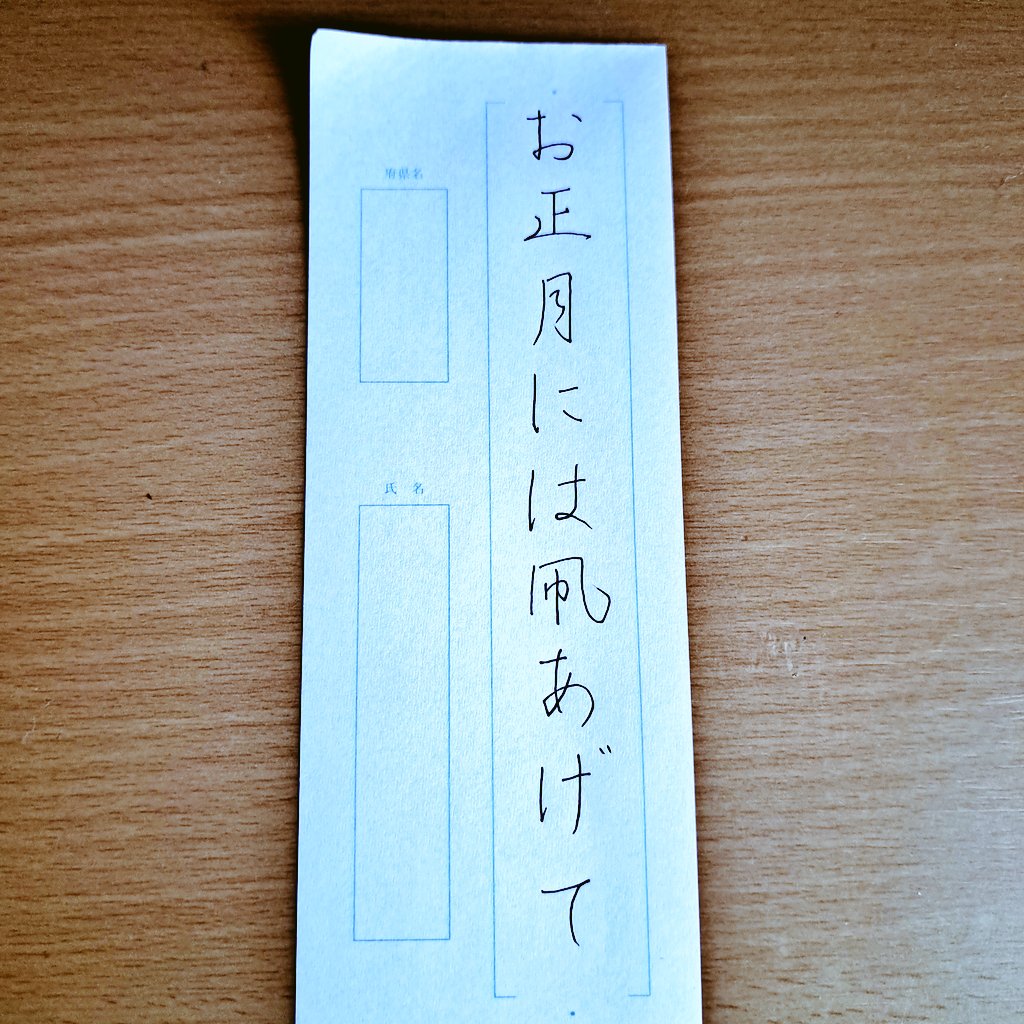 お正月には凧あげて
府県名
氏名